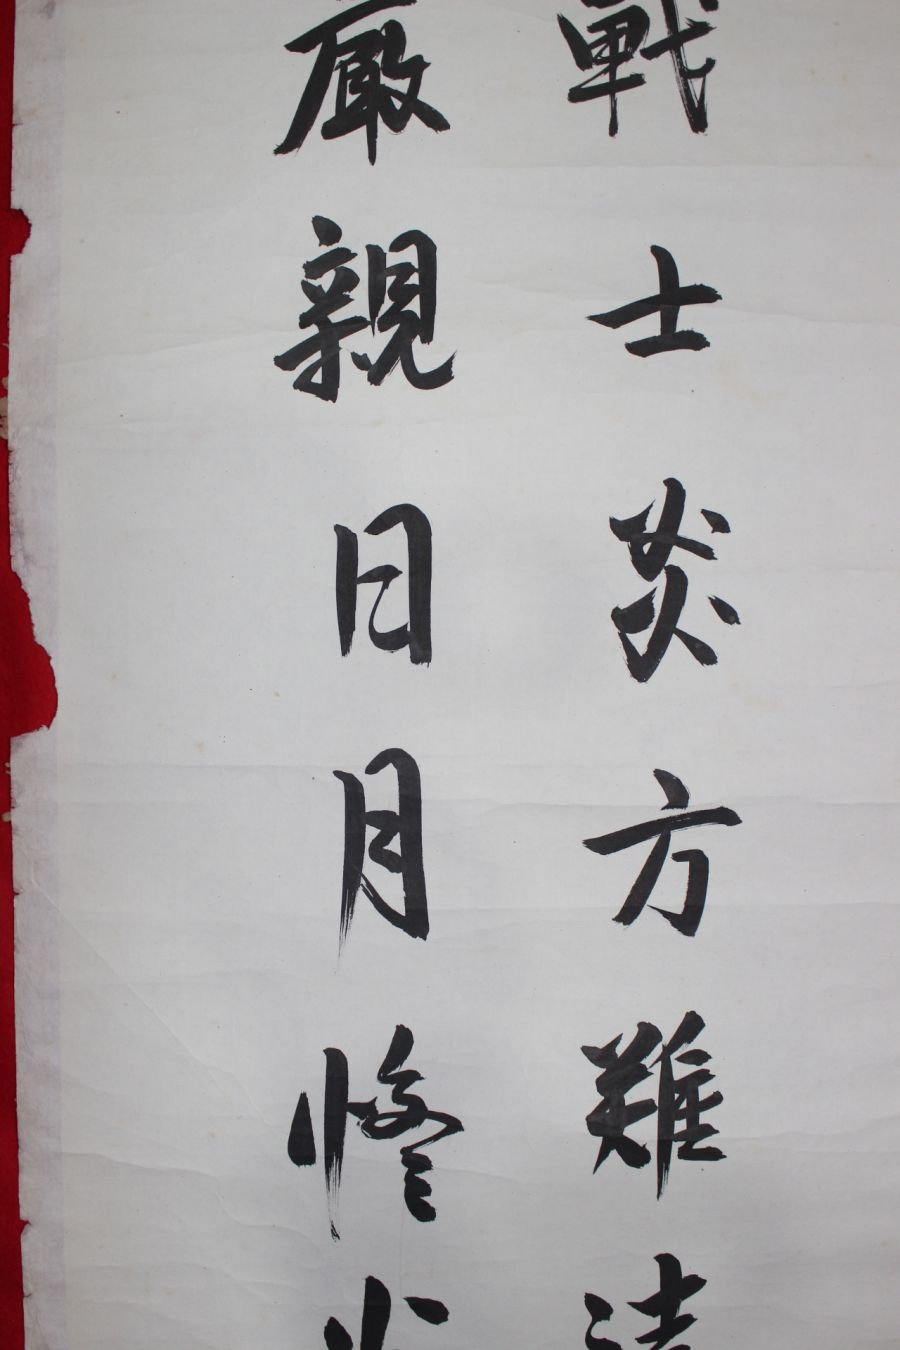 戰士炎方難
嚴親日月修